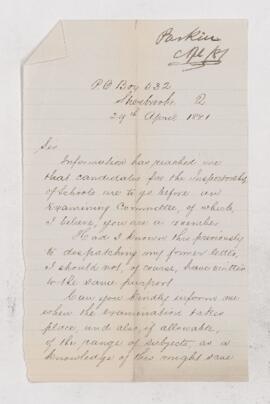 Parkin
Apl /81
P.O Box 632
Sherbrooke Q
29th April 1881
Sir
Information has reached me
that candidates for the Inspectorship
of Schools are to go before an
Examining Committee, of which,
I believe, you are a member
Had I known this previously
to despatching my former letter,
I should not, of course, have written
to the same purport
Can you kindly inform me
when the examination takes
place, and also, if allowable,
of the range of subjects, as a
knowledge of this might save